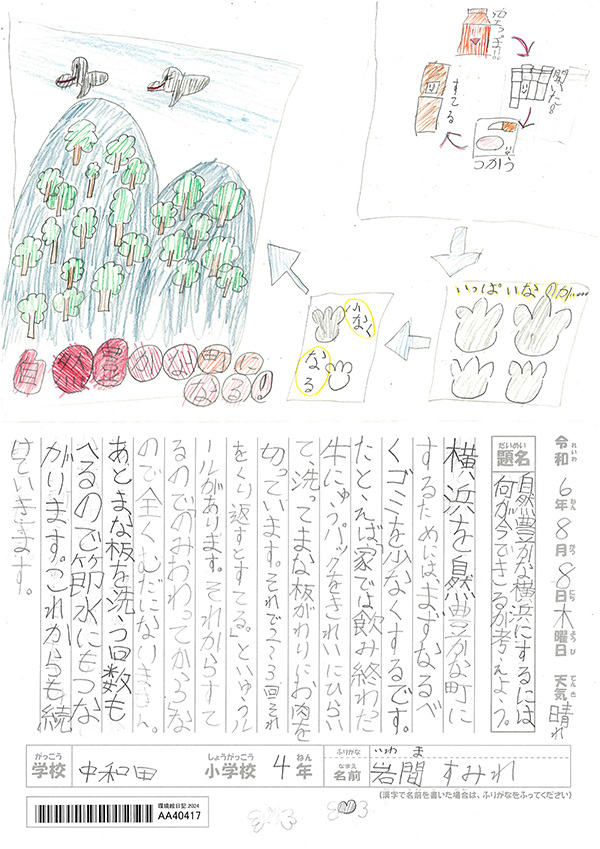 開いた
つかう
すてる
いっぱい
少なく
なる
自然豊かな町に
なる!
令和6年8月8日木曜日 天気 晴れ
れいわ ねん がつ にち ようび てんき
だいめい
題名
自然豊かな横浜にするには
何が今できるか考えよう。
横浜を自然豊かな町に
するためには、まずなるべ
くゴミを少なくするです。
たとえば「家では飲み終わった
牛にゅうパックをきれいにひらい
て、洗ってまな板がわりにお肉を
切っています。それで2~3回それ
をくり返すとすてる。」というル
ールがあります。それからすて
るのでのみおわってからな
ので全くむだになりません。
あとまな板を洗う回数も
へるので節水にもつな
がります。これからも続
けていきます。
がっこう しょうがっこう ねん
学校 中和田 小学校 4年
ふりがな いわま
なまえ
名前 岩間 すみれ
(漢字で名前を書いた場合は、ふりがなをふってください)
環境絵日記 2024
AA40417